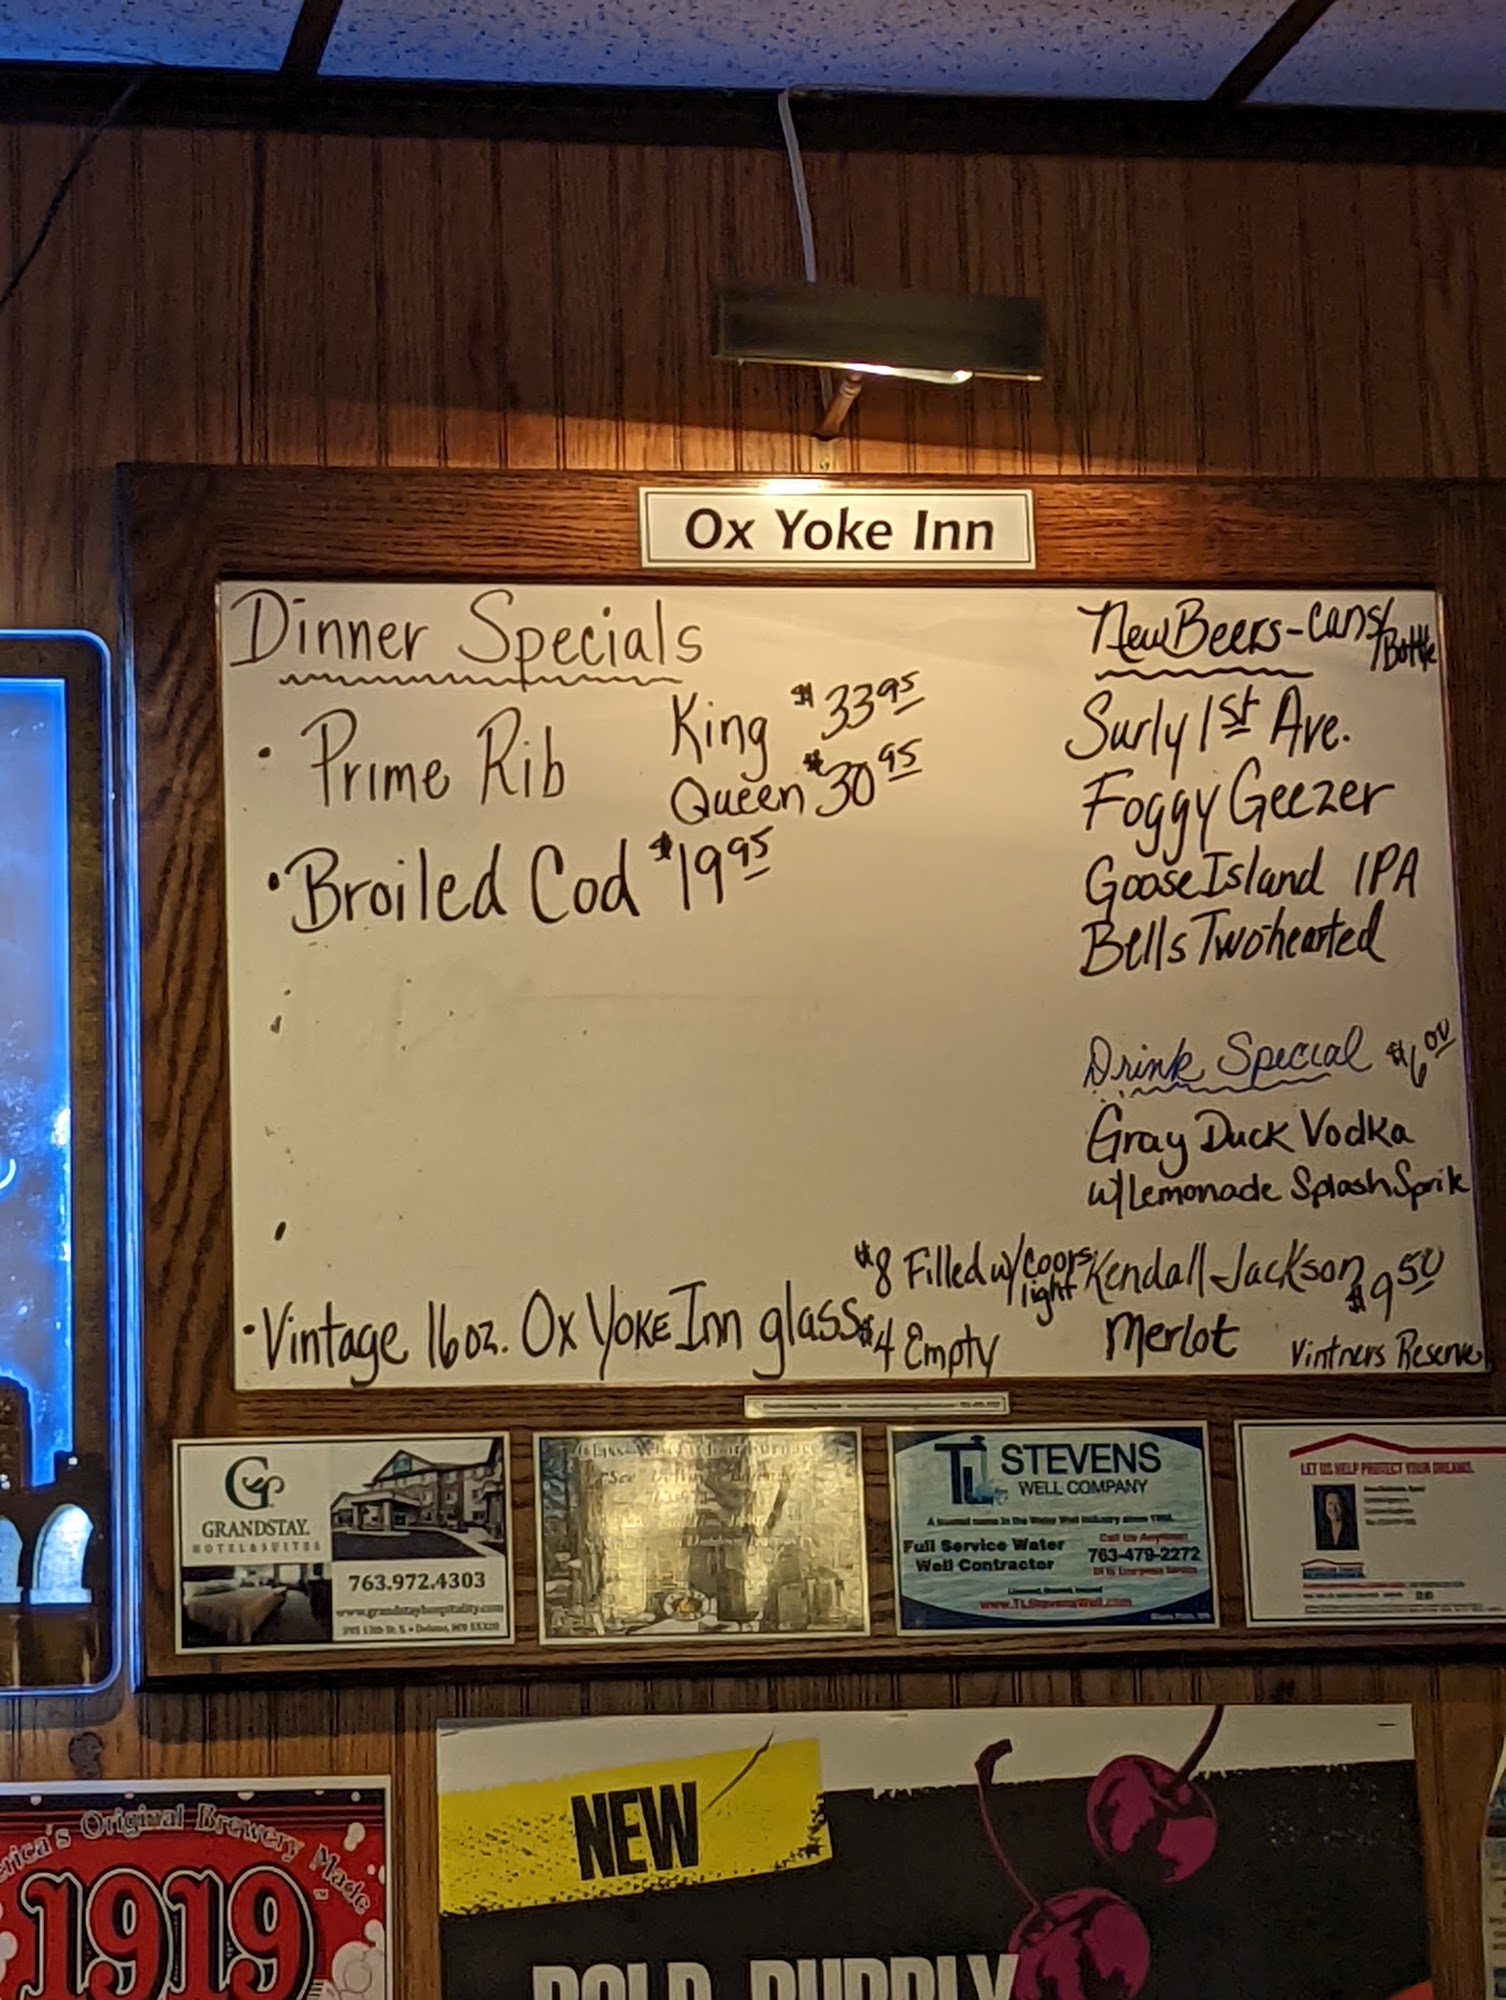 Ox Yoke Inn
Dinner Specials
• Prime Rib King $33.95
Queen $30.95
• Broiled Cod $19.95
• Vintage 16oz. Ox Yoke Inn glass
$8 Filled w/ Coors light
$4 Empty
New Beers - Cans/Bottle
Surly 1st Ave.
Foggy Geezer
Goose Island IPA
Bells Twohearted
Drink Special $6.00
Gray Duck Vodka
w/ Lemonade Splash Sprite
Kendall-Jackson $9.50
Merlot Vintners Reserve
GRANDSTAY.
HOTEL & SUITES
763.972.4303
www.grandstayhospitality.com
TL STEVENS
WELL COMPANY
A trusted name in the Water Well Industry since
Full Service Water
Well Contractor
Call Us Anytime!
763-479-2272
24 Hr Emergency Service
Licensed, Bonded, Insured
www.TLStevensWell.com
LET US HELP PROTECT YOUR DREAMS.
erica's Original Brewery Made
1919
NEW
BOLD. BUBBLY